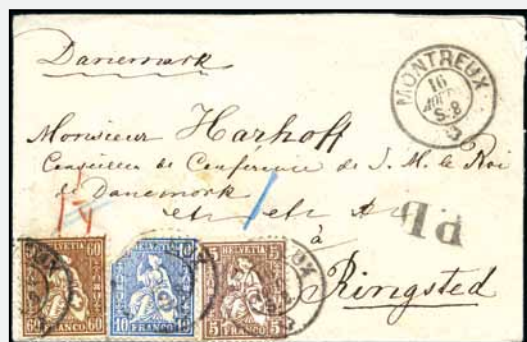 Danemark
MONTREUX
16
AOUT
S-8
Monsieur Harhoff
Conseiller de Conférence de S. M. le Roi
de Danemark
etc etc
à
Ringsted
P.D.
HELVETIA
60
60 FRANCO 60
HELVETIA
10
10 FRANCO 10
HELVETIA
5 5
5 FRANCO 5